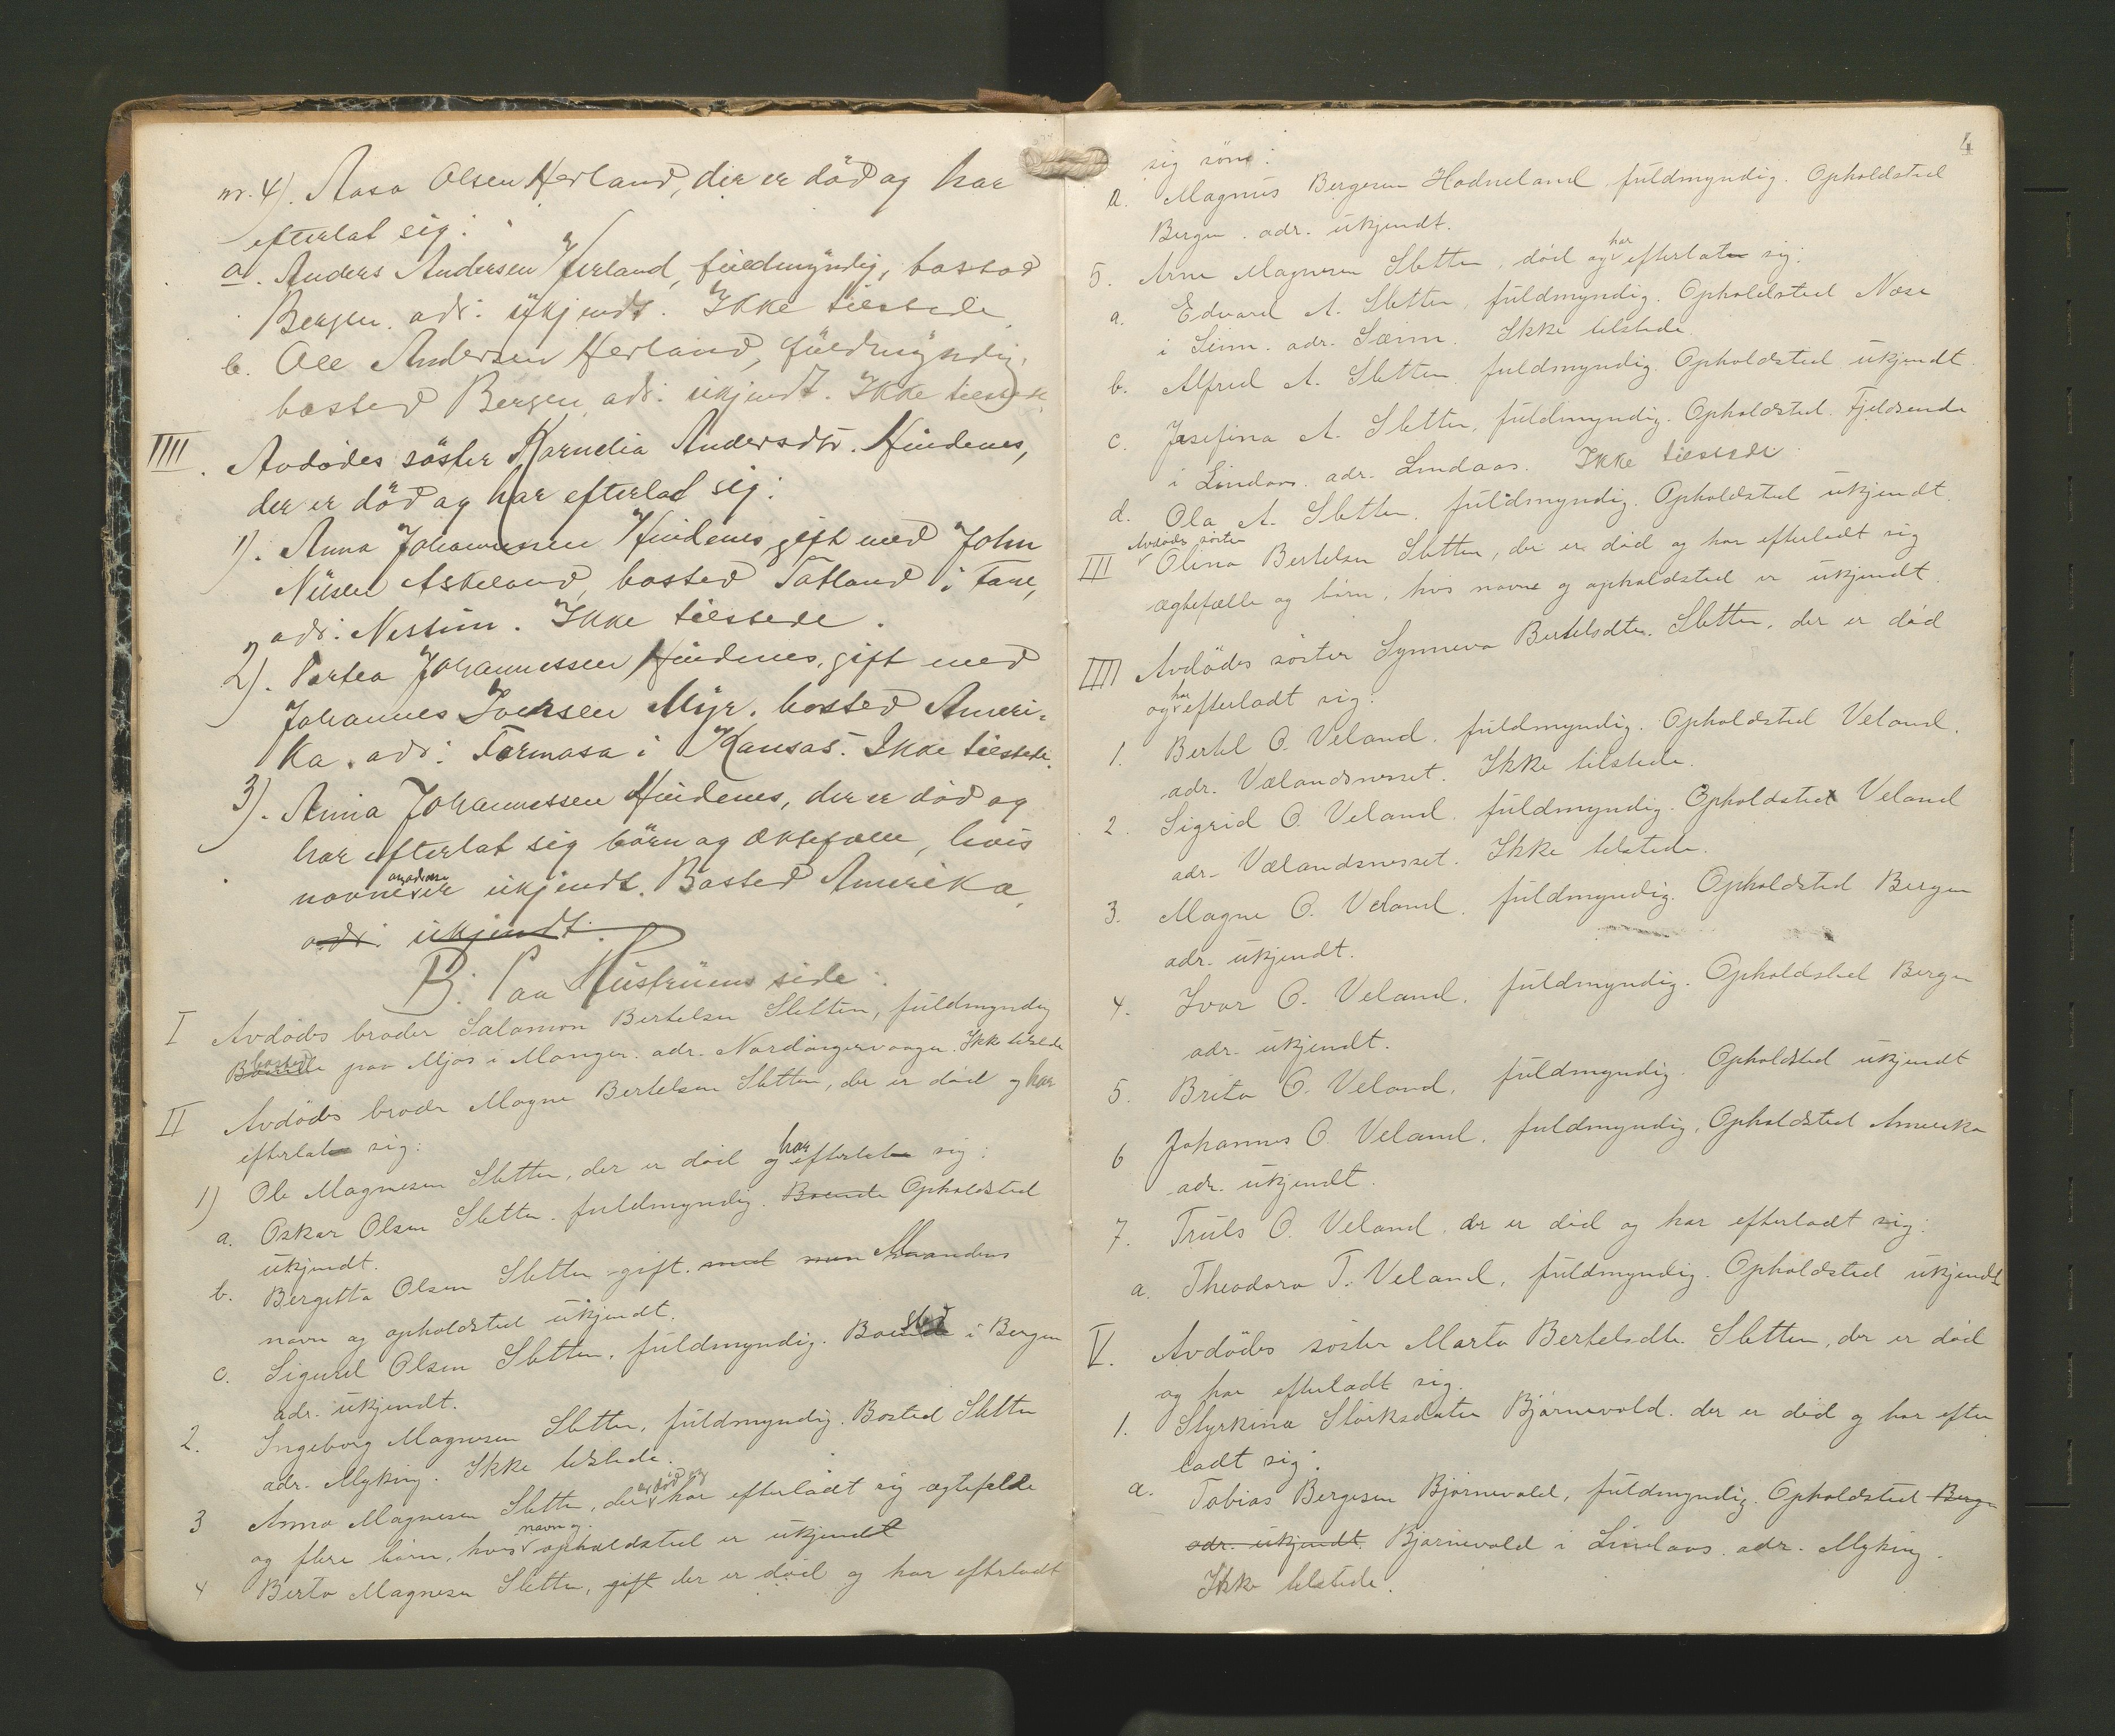 nr. 4). Aasa Olsen Herland, der er död og har
efterlat sig:
a. Anders Andersen Herland, fuldmyndig, bosted
Bergen. adr: ukjendt. Ikke tilstede
b. Ole Andersen Herland, fuldmyndig,
bosted Bergen, adr: ukjendt. Ikke tilstede.
IIII. Avdödes söster Karnelia Andersdtr. Hindenes,
der er död og har efterlat sig:
1). Anna Johannessen Hindenes gift med John
Nilsen Askeland, bosted Totland i Fane,
adr: Nesttun. Ikke tilstede.
2). Portea Johannessen Hindenes, gift med
Johannes Iversen Myr. bosted Ameri-
ka, adr: Formosa i Kansas. Ikke tilstede.
3). Anna Johannessen Hindenes, der er död og
har efterlat sig börn og ektefælle, hvis
navne og adresse er ukjendt. Bosted Amerika,
adr: ukjendt.
B. Paa Hustruens side:
I Avdödes broder Salamon Bertelsen Sletten, fuldmyndig
bosted paa Mjøs i Manger. adr. Nordangervaagen. Ikke tilstede
II Avdödes broder Magne Bertelsen Sletten, der er död og har
efterlat sig:
1) Ole Magnesen Sletten, der er död og har efterlat sig:
a. Oskar Olsen Sletten. fuldmyndig. Boende Opholdsted
ukjendt.
b. Bergitta Olsen Sletten gift. med Mandens
navn og opholdsted ukjendt.
c. Sigurd Olsen Sletten, fuldmyndig. Bosted i Bergen
adr. ukjendt.
2. Ingeborg Magnesen Sletten, fuldmyndig. Bosted Sletten
adr. Myking. Ikke tilstede.
3 Anna Magnesen Sletten, der er död og har efterladt sig ægtefelle
og flere børn, hvis navn og opholdsted er ukjendt
4 Berta Magnesen Sletten, gift der er död og har efterladt
4
sig sönn:
a. Magnus Bergesen Hodneland fuldmyndig. Opholdsted
Bergen. adr. ukjendt.
5. Arne Magnesen Sletten, död og har efterlaten sig:
a. Edvard A. Sletten, fuldmyndig. Opholdsted Nese
i Seim. adr. Sæim. Ikke tilstede
b. Alfred A. Sletten fuldmyndig. Opholdsted ukjendt.
c. Josefina A. Sletten, fuldmyndig. Opholdsted. Fjeldsende
i Lindaas. adr. Lindaas. Ikke tilstede
d. Ola A. Sletten, fuldmyndig. Opholdsted ukjendt.
III Avdödes söster Olina Bertelsen Sletten, der er död og har efterladt sig
ægtefælle og börn, hvis navne og opholdsted er ukjendt.
IIII Avdödes söster Synneva Bertelsdtr. Sletten, der er död
og har efterladt sig:
1. Bertel O. Veland, fuldmyndig. Opholdsted Veland.
adr. Vælandsnesset. Ikke tilstede.
2. Sigrid O. Veland, fuldmyndig. Opholdsted Veland
adr. Vælandsnesset. Ikke tilstede.
3. Magne O. Veland, fuldmyndig. Opholdsted Bergen
adr. ukjendt.
4. Ivar O. Veland, fuldmyndig. Opholdsted Bergen
adr. ukjendt.
5. Brita O. Veland, fuldmyndig. Opholdsted ukjendt
6 Johannes O. Veland, fuldmyndig, Opholdsted Amerika
adr. ukjendt.
7. Truls O. Veland, der er död og har efterladt sig:
a. Theodora T. Veland, fuldmyndig. Opholdsted ukjendt
V. Avdödes söster Marta Bertelsdtr. Sletten, der er död
og har efterladt sig.
1. Styrkina Störksdatter Bjørnevold. der er död og har efter
ladt sig:
a. Tobias Bergesen Bjørnevold, fuldmyndig. Opholdsted Bergen
adr. ukjendt. Bjørnevold i Lindaas. adr. Myking.
Ikke tilstede.